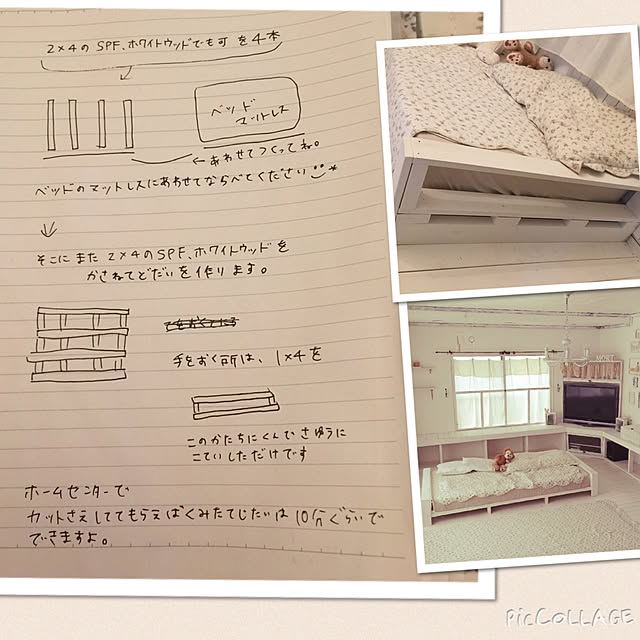 2×4の SPF、ホワイトウッドでも可 を4本
ベッド
マットレス
←あわせてつくってね。
ベッドのマットレスにあわせてならべてください
そこにまた 2×4のSPF、ホワイトウッドを
かさねてどだいを作ります。
手をおく所は、1×4を
このかたちにくんでさゆうに
こていしただけです
ホームセンターで
カットさえしてもらえばくみたてじたいは 10分ぐらいで
できますよ。
PIC COLLAGE